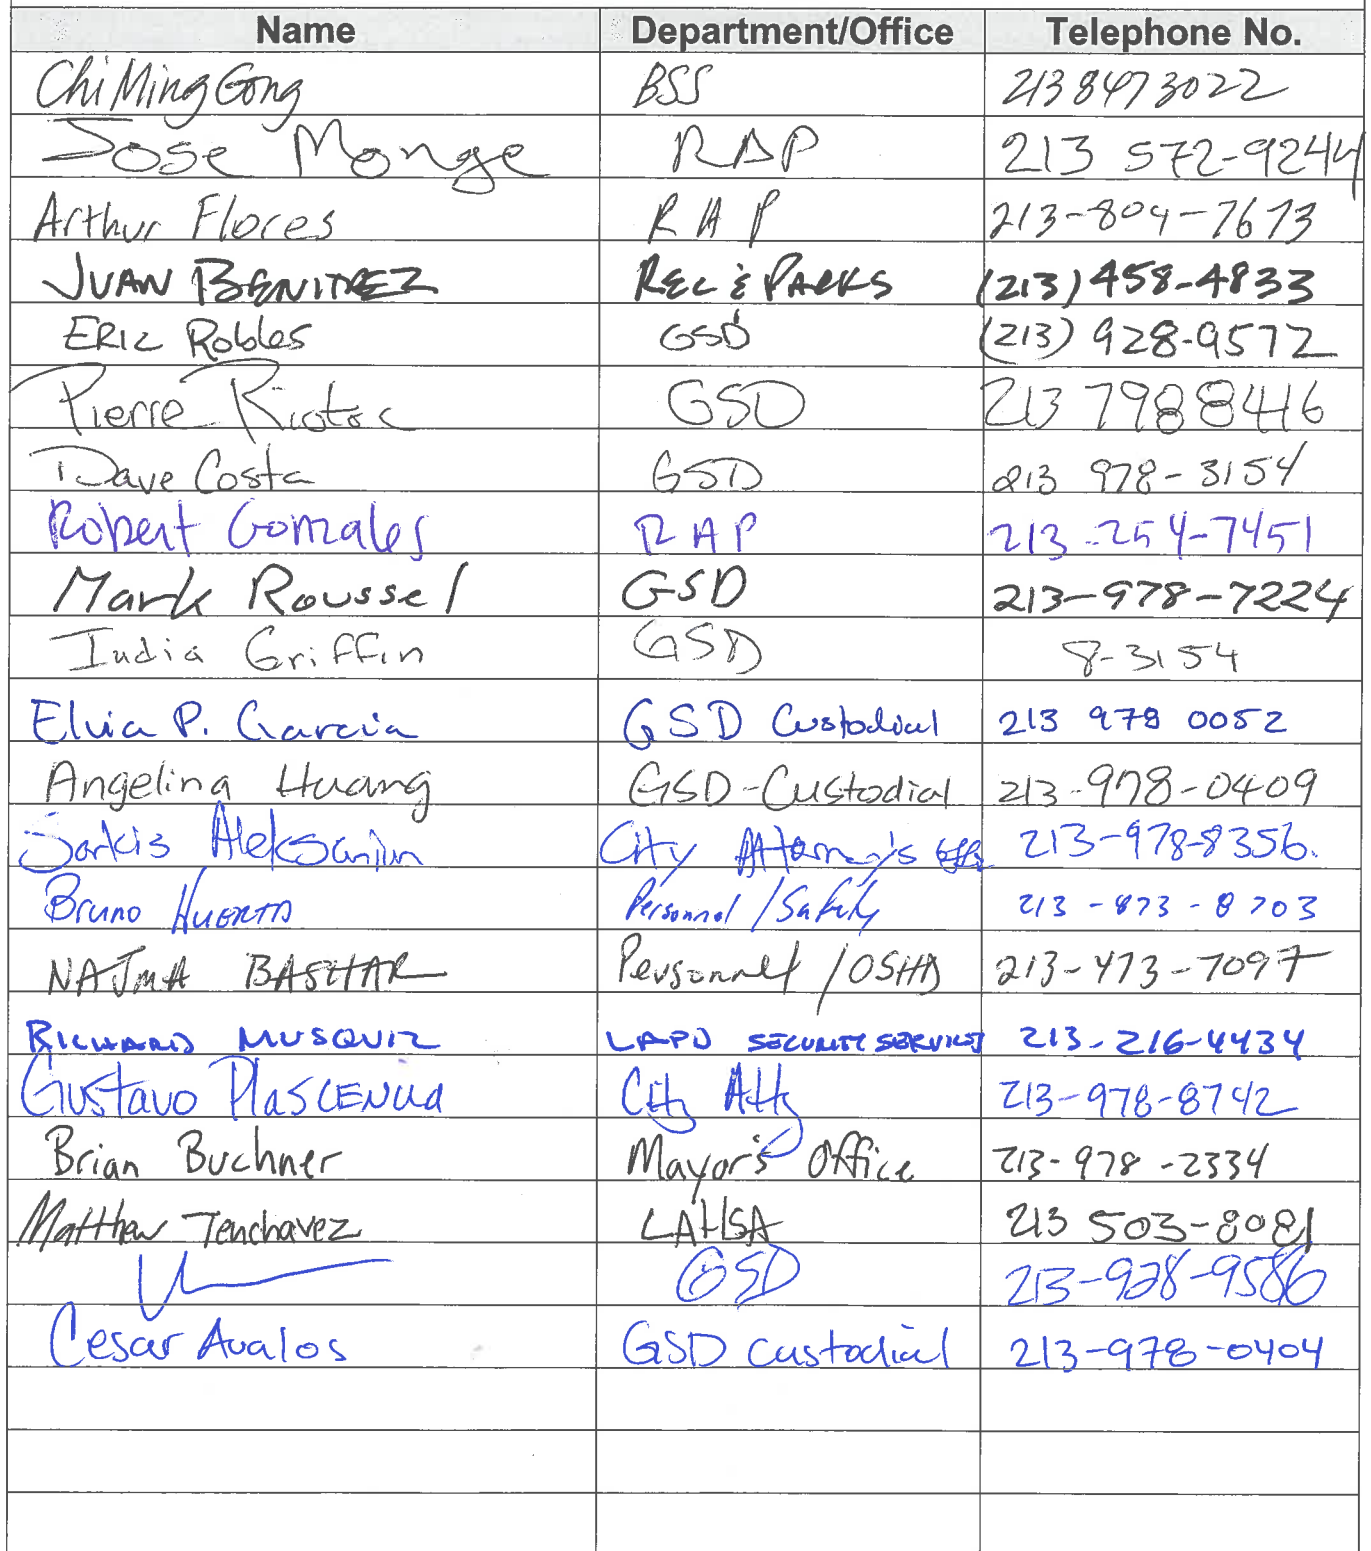 Name Department/Office Telephone No.
Chi Ming Gong BSS 213 8473022
Jose Monge RAP 213 572-9244
Arthur Flores RAP 213-804-7673
JUAN BENITEZ REC & PARKS (213) 458-4833
ERIC Robles GSD (213) 928-9572
Pierre GSD 213 7988446
Dave Costa GSD 213 978-3154
Robert Gonzales RAP 213-254-7451
Mark Roussel GSD 213-978-7224
India Griffin GSD 8-3154
Elvia P. Garcia GSD Custodial 213 978 0052
Angelina Huang GSD-Custodial 213-978-0409
Sarkis Aleksanian City Attorney's 213-978-8356
Bruno HUERTA Personnel/Safety 213-473-8703
NAJMA BASHAR Personnel/OSHA 213-473-7097
RICHARD MUSQUIZ LAPD SECURITY SERVICES 213-216-4434
Gustavo PlasCENCia City Atty 213-978-8742
Brian Buchner Mayor's Office 213-978-2334
Matthew Tenchavez LAHSA 213 503-8081
GSD 213-928-9586
Cesar Avalos GSD custodial 213-978-0404